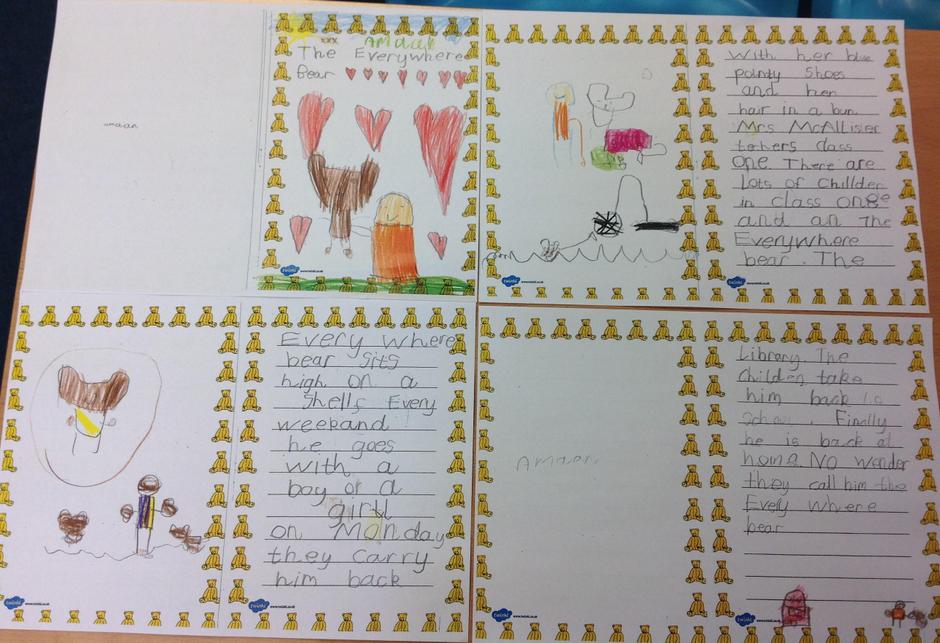 amaan
Amaan
The Everywhere
Bear
twinkl www.twinkl.co.uk
With her blue
pointy shoes
and her
hair in a bun
Mrs McAllister
tethers class
one. There are
Lots of Chillder
in class one
and an The
Everywhere
bear. The
twinkl www.twinkl.co.uk
Every where
bear sits
high on a
Shells Every
weekand
he goes
with a
boy or a
girtl
on Monday
they carry
him back
twinkl www.twinkl.co.uk
twinkl www.twinkl.co.uk
Amaan
Library. The
Children take
him back to
School. Finally
he is back at
home No wonder
they call him the
Every Where
bear
twinkl www.twinkl.co.uk